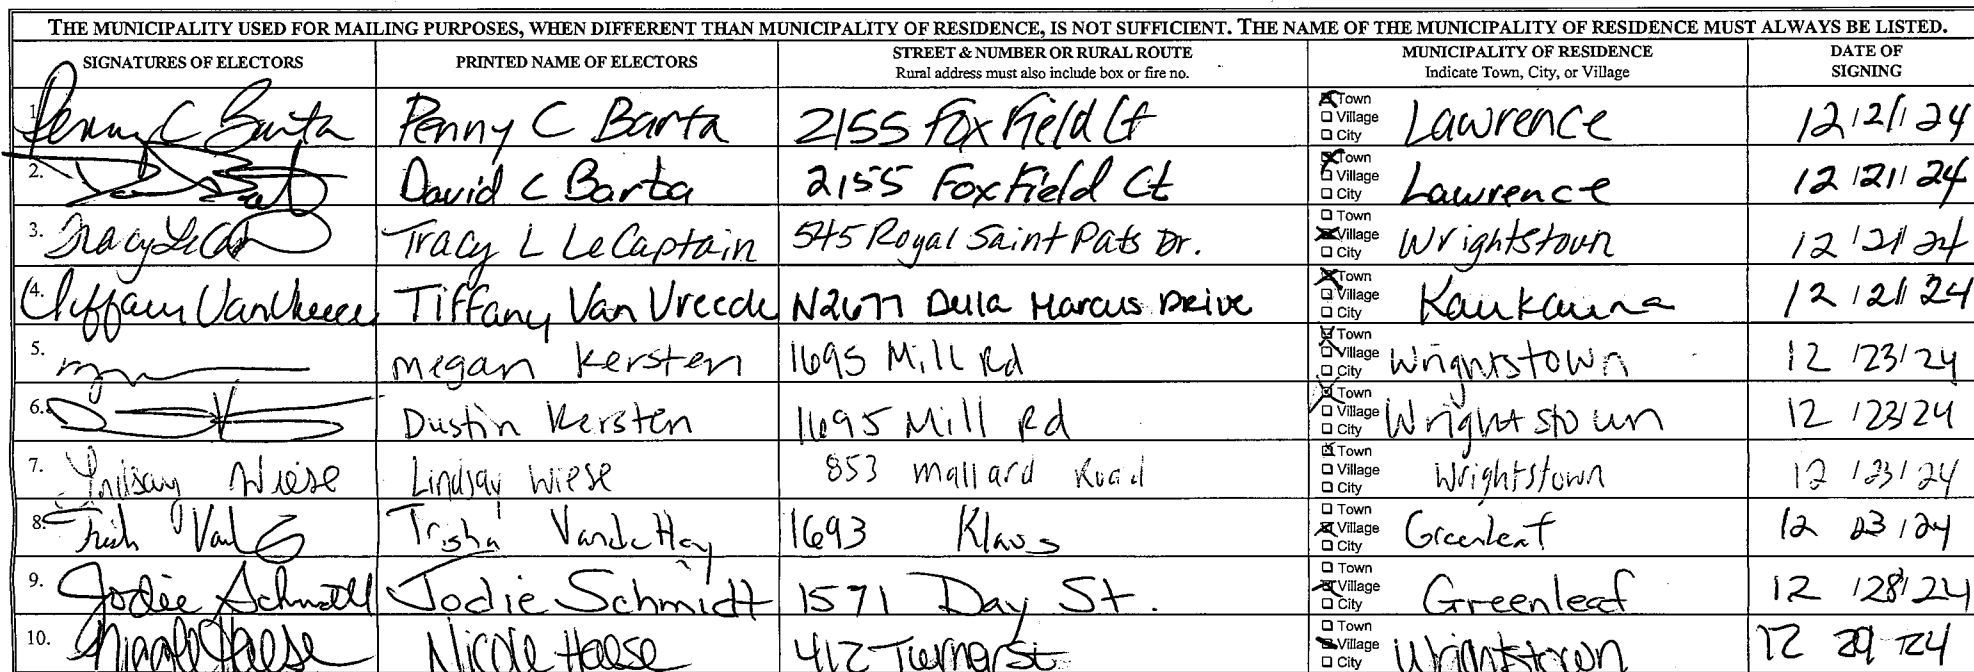 THE MUNICIPALITY USED FOR MAILING PURPOSES, WHEN DIFFERENT THAN MUNICIPALITY OF RESIDENCE, IS NOT SUFFICIENT. THE NAME OF THE MUNICIPALITY OF RESIDENCE MUST ALWAYS BE LISTED.
SIGNATURES OF ELECTORS PRINTED NAME OF ELECTORS STREET & NUMBER OR RURAL ROUTE MUNICIPALITY OF RESIDENCE DATE OF
Rural address must also include box or fire no. Indicate Town, City, or Village SIGNING
1. Penny C Barta Penny C Barta 2155 Fox Field Ct Town Village City Lawrence 12/21/24
2. David C Barta 2155 Fox Field Ct Town Village City Lawrence 12/21/24
3. Tracy LeCap Tracy L LeCaptain 545 Royal Saint Pats Dr. Town Village City Wrightstown 12/21/24
4. Tiffany VanVreede Tiffany Van Vreede N2677 Dula Marcus Drive Town Village City Kaukauna 12/21/24
5. Megan Kersten 1695 Mill Rd Town Village City Wrightstown 12/23/24
6. Dustin Kersten 1695 Mill Rd Town Village City Wrightstown 12/23/24
7. Lindsay Wiese Lindsay Wiese 853 Mallard Road Town Village City Wrightstown 12/23/24
8. Trish Trisha VandeHey 1693 Klaus Town Village City Greenleaf 12 23/24
9. Jodie Schmidt Jodie Schmidt 1571 Day St. Town Village City Greenleaf 12/28/24
10. Nicole Haese Nicole Haese 412 Turner St Town Village City Wrightstown 12 29 24